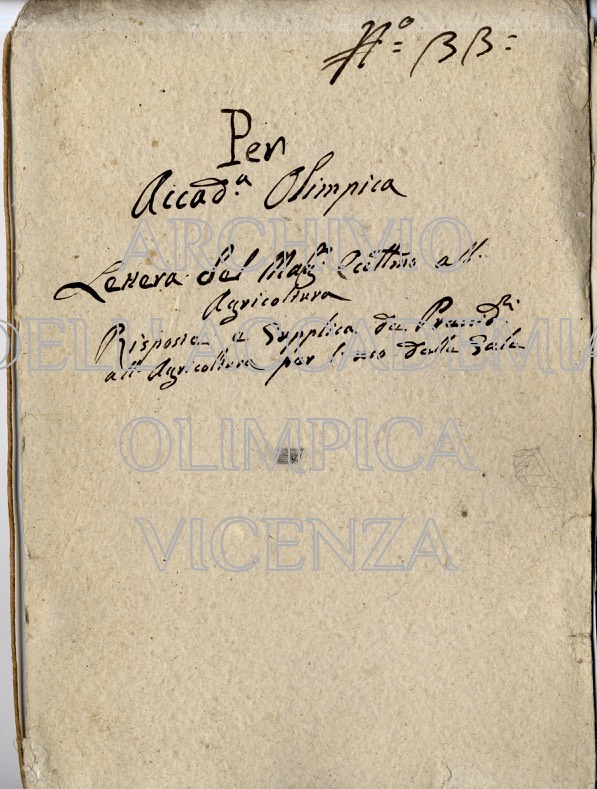 Nº 33
Per
Accad.ª Olimpica
Lettera del Mag.º all
Agricoltura
Risposta e Supplica de
all Agricoltura per l'uso delle Sale
ARCHIVIO
DELL'ACCADEMIA
OLIMPICA
VICENZA